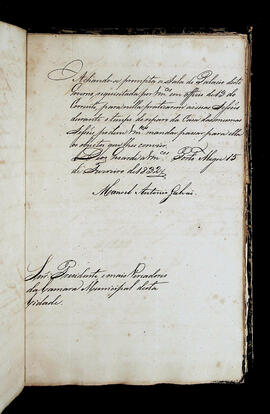 Achando-se prompta a Sala de Palacio deste
Governo, requisitada por Vmces em officio de 13 do
Corrente, para nella praticarem as suas Sessões
durante o tempo do reparo da Casa das mesmas
Sessões, podem Vmces mandar passar para ella
os objectos que lhes convier.
Deos Guarde a Vmces Porto Alegre 15
de Fevereiro de 1832
Manoel Antonio Galvão
Snrs Presidente, e mais Vereadores
da Camara Municipal desta
Cidade.